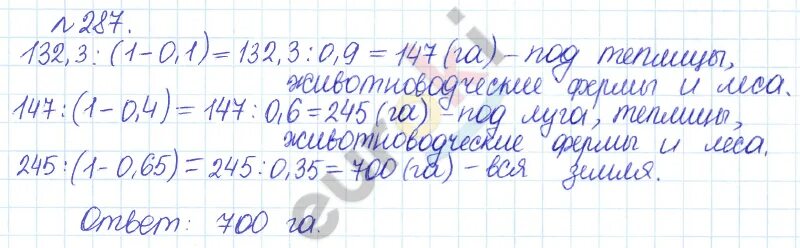 № 287.
132,3 : (1-0,1) = 132,3 : 0,9 = 147 (га) - под теплицы,
животноводческие фермы и леса.
147 : (1-0,4) = 147 : 0,6 = 245 (га) - под луга, теплицы,
животноводческие фермы и леса.
245 : (1-0,65) = 245 : 0,35 = 700 (га) - вся земля.
Ответ: 700 га.
euroki